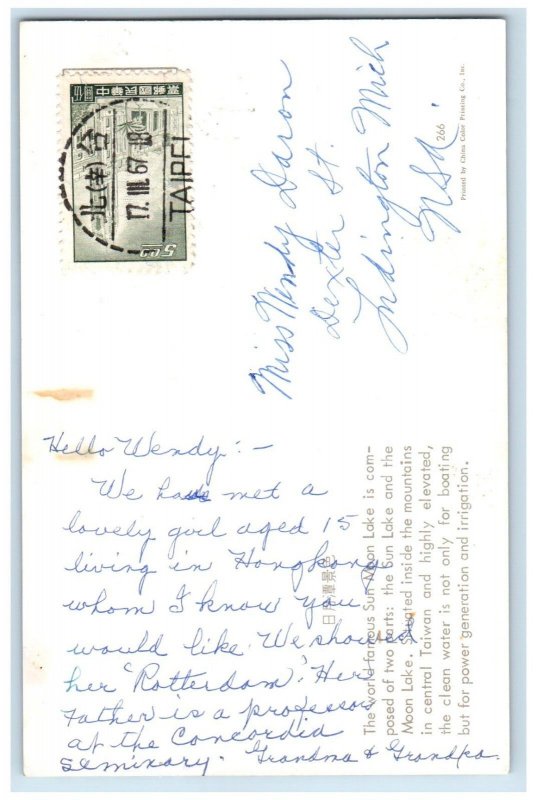 Hello Wendy: -
We have met a
lovely girl aged 15
living in Hongkong
whom I know you
would like. We showed
her "Rotterdam". Her
Father is a professor
at the Concordia
seminary. Grandma & Grandpa.
Miss Wendy Daron
Dexter St.
Mich
USA.
日月潭景色
The world-famous Sun Moon Lake is com-
posed of two parts: the Sun Lake and the
Moon Lake. Situated inside the mountains
in central Taiwan and highly elevated,
the clean water is not only for boating
but for power generation and irrigation.
266
Printed by China Color Printing Co., Inc.
票郵國民華中
5.00
台
17. III. 67. 18
北(辛)
TAIPEI